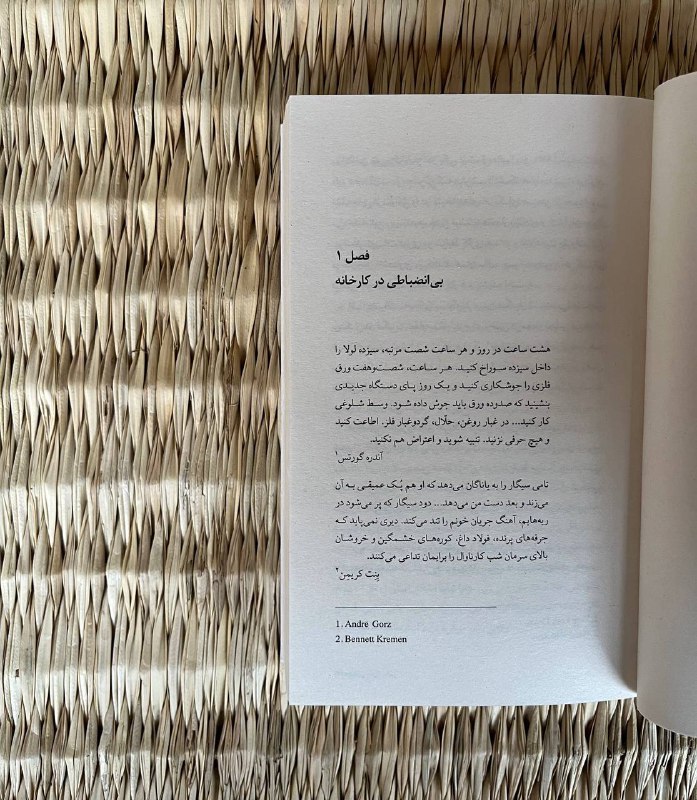 فصل ۱
بی‌انضباطی در کارخانه
هشت ساعت در روز و هر ساعت شصت مرتبه، سیزده لولا را
داخل سیزده سوراخ کنید. هر ساعت، شصت‌وهفت ورق
فلزی را جوشکاری کنید و یک روز پای دستگاه جدیدی
بنشینید که صدوده ورق باید جوش داده شود. وسط شلوغی
کار کنید... در غبار روغن، حلّال، گردوغبار فلز. اطاعت کنید
و هیچ حرفی نزنید. تنبیه شوید و اعتراض هم نکنید.
آندره گورتس۱
تامی سیگار را به یاناگان می‌دهد که او هم پُک عمیقی به آن
می‌زند و بعد دست من می‌دهد... دود سیگار که پر می‌شود در
ریه‌هایم، آهنگ جریان خونم را تند می‌کند. دیری نمی‌پاید که
جرقه‌های پرنده، فولاد داغ، کوره‌های خشمگین و خروشان
بالای سرمان شب کارناوال را برایمان تداعی می‌کنند.
بِنت کریمِن۲
1. André Gorz
2. Bennett Kremen